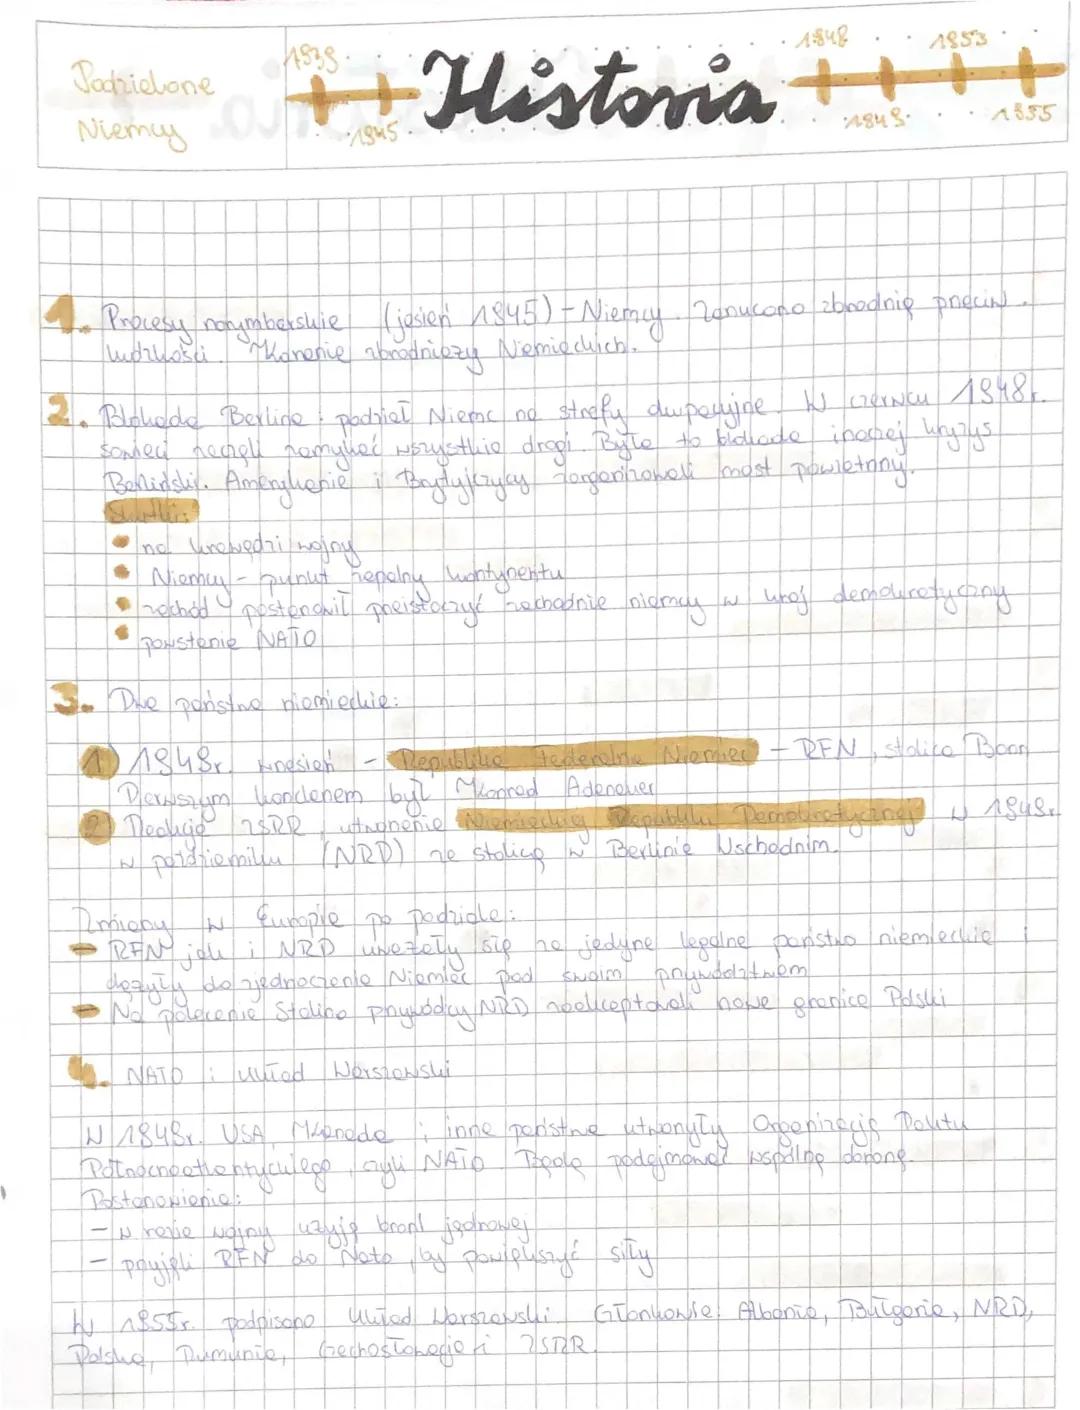 Podzielone
Niemcy
1939
1945
Historia
1948
1949
1953
1955
1. Procesy norymberskie (jesień 1945) - Niemcy. Zarzucono zbrodnię przeciw
ludzkości. Karanie zbrodniarzy Niemieckich.
2. Blokada Berlina: podział Niemc na strefy okupacyjne. W czerwcu 1948r.
sowieci zaczęli zamykać wszystkie drogi. Była to blokada inaczej kryzys
Berliński. Amerykanie i Brytyjczycy zorganizowali most powietrzny.
Skutki:
• na krawędzi wojny
• Niemcy - punkt zapalny kontynentu
• zachód postanowił przeistoczyć zachodnie niemcy w kraj demokratyczny
• powstanie NATO
3. Dwa państwa niemieckie:
1) 1949r. wrzesień - Republika Federalna Niemiec - RFN, stolica Bonn
Pierwszym kanclerzem był Konrad Adenauer
2) Reakcja ZSRR, utworzenie Niemieckiej Republiki Demokratycznej w 1949r.
w październiku (NRD) ze stolicą w Berlinie Wschodnim.
Zmiany w Europie po podziale:
- RFN jak i NRD uważały się za jedyne legalne państwo niemieckie i
dążyły do zjednoczenia Niemiec pod swoim przywództwem
- Na polecenie Stalina przywódcy NRD zaakceptowali nowe granice Polski
4. NATO i układ Warszawski
W 1949r. USA, Kanada i inne państwa utworzyły Organizację Paktu
Północnoatlantyckiego, czyli NATO. Będą podejmować wspólną obronę.
Postanowienia:
- w razie wojny użyją broni jądrowej
- przyjęli RFN do Nato, by powiększyć siły
W 1955r. podpisano Układ Warszawski. Członkowie: Albania, Bułgaria, NRD,
Polska, Rumunia, Czechosłowacja i ZSRR.